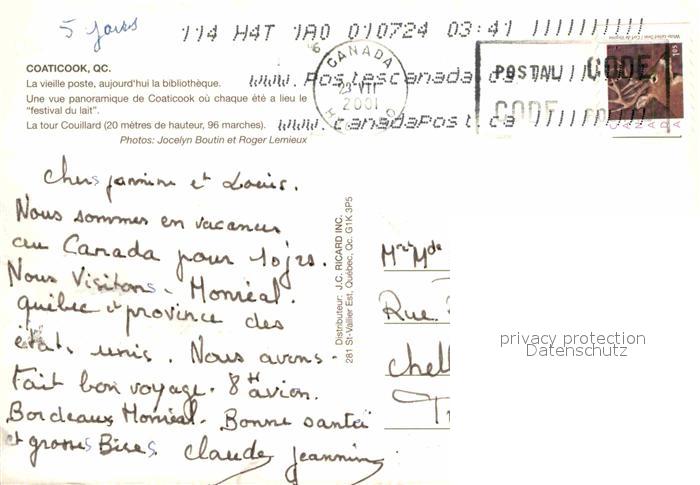 5 jours
114 H4T 1A0 010724 03:41
CANADA
23 VII
2001
www.postescanada.ca
www.canadapost.ca
POSTAL CODE
CODE
COATICOOK, QC.
La vieille poste, aujourd'hui la bibliothèque.
Une vue panoramique de Coaticook où chaque été a lieu le
"festival du lait".
La tour Couillard (20 mètres de hauteur, 96 marches).
Photos: Jocelyn Boutin et Roger Lemieux
Chers Jannine et Louis.
Nous sommes en vacances
au Canada pour 10 jrs.
Nous Visitons - Monréal.
québec et province des
états unis. Nous avons -
Fait bon voyage. 8H avion.
Bordeaux Monréal. Bonne santé
et grosses Bises. Claude Jeannine
Distributeur: J.C. RICARD INC.
281 St-Vallier Est, Québec, Qc. G1K 3P5
Mr Mde
Rue
Chell
privacy protection
Datenschutz